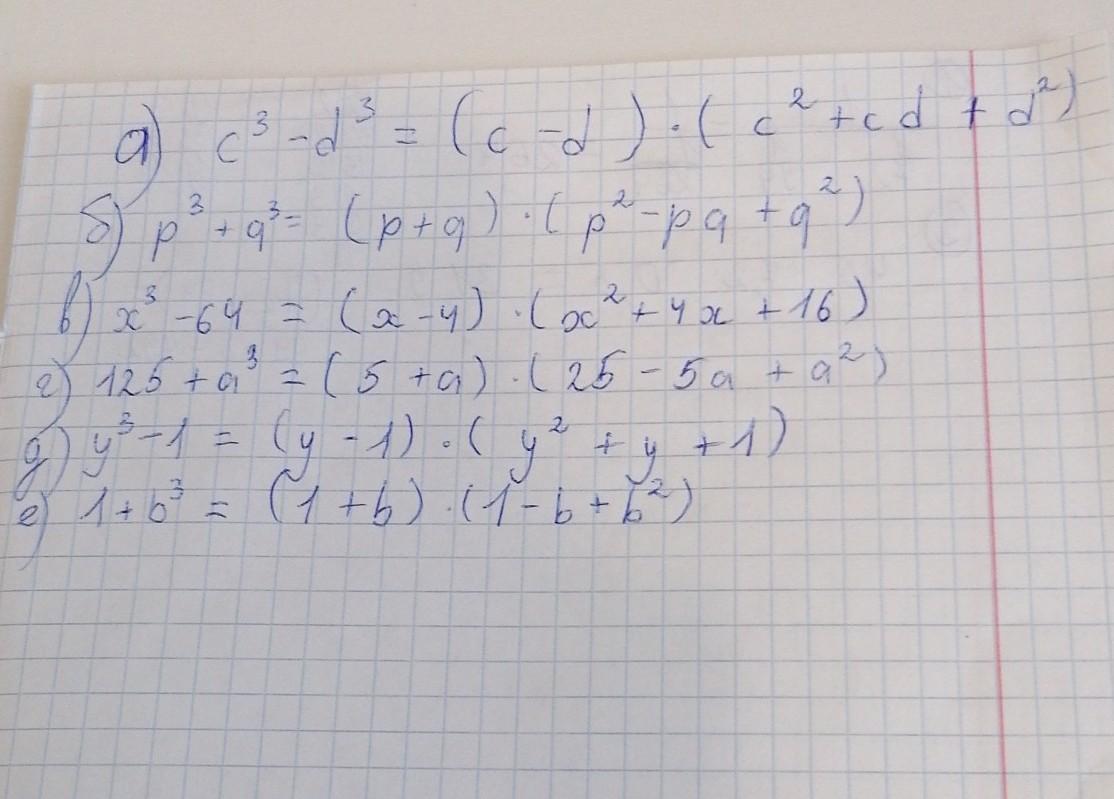 а) c³ - d³ = (c - d) · (c² + cd + d²)
б) p³ + q³ = (p + q) · (p² - pq + q²)
в) x³ - 64 = (x - 4) · (x² + 4x + 16)
г) 125 + a³ = (5 + a) · (25 - 5a + a²)
д) y³ - 1 = (y - 1) · (y² + y + 1)
е) 1 + b³ = (1 + b) · (1 - b + b²)